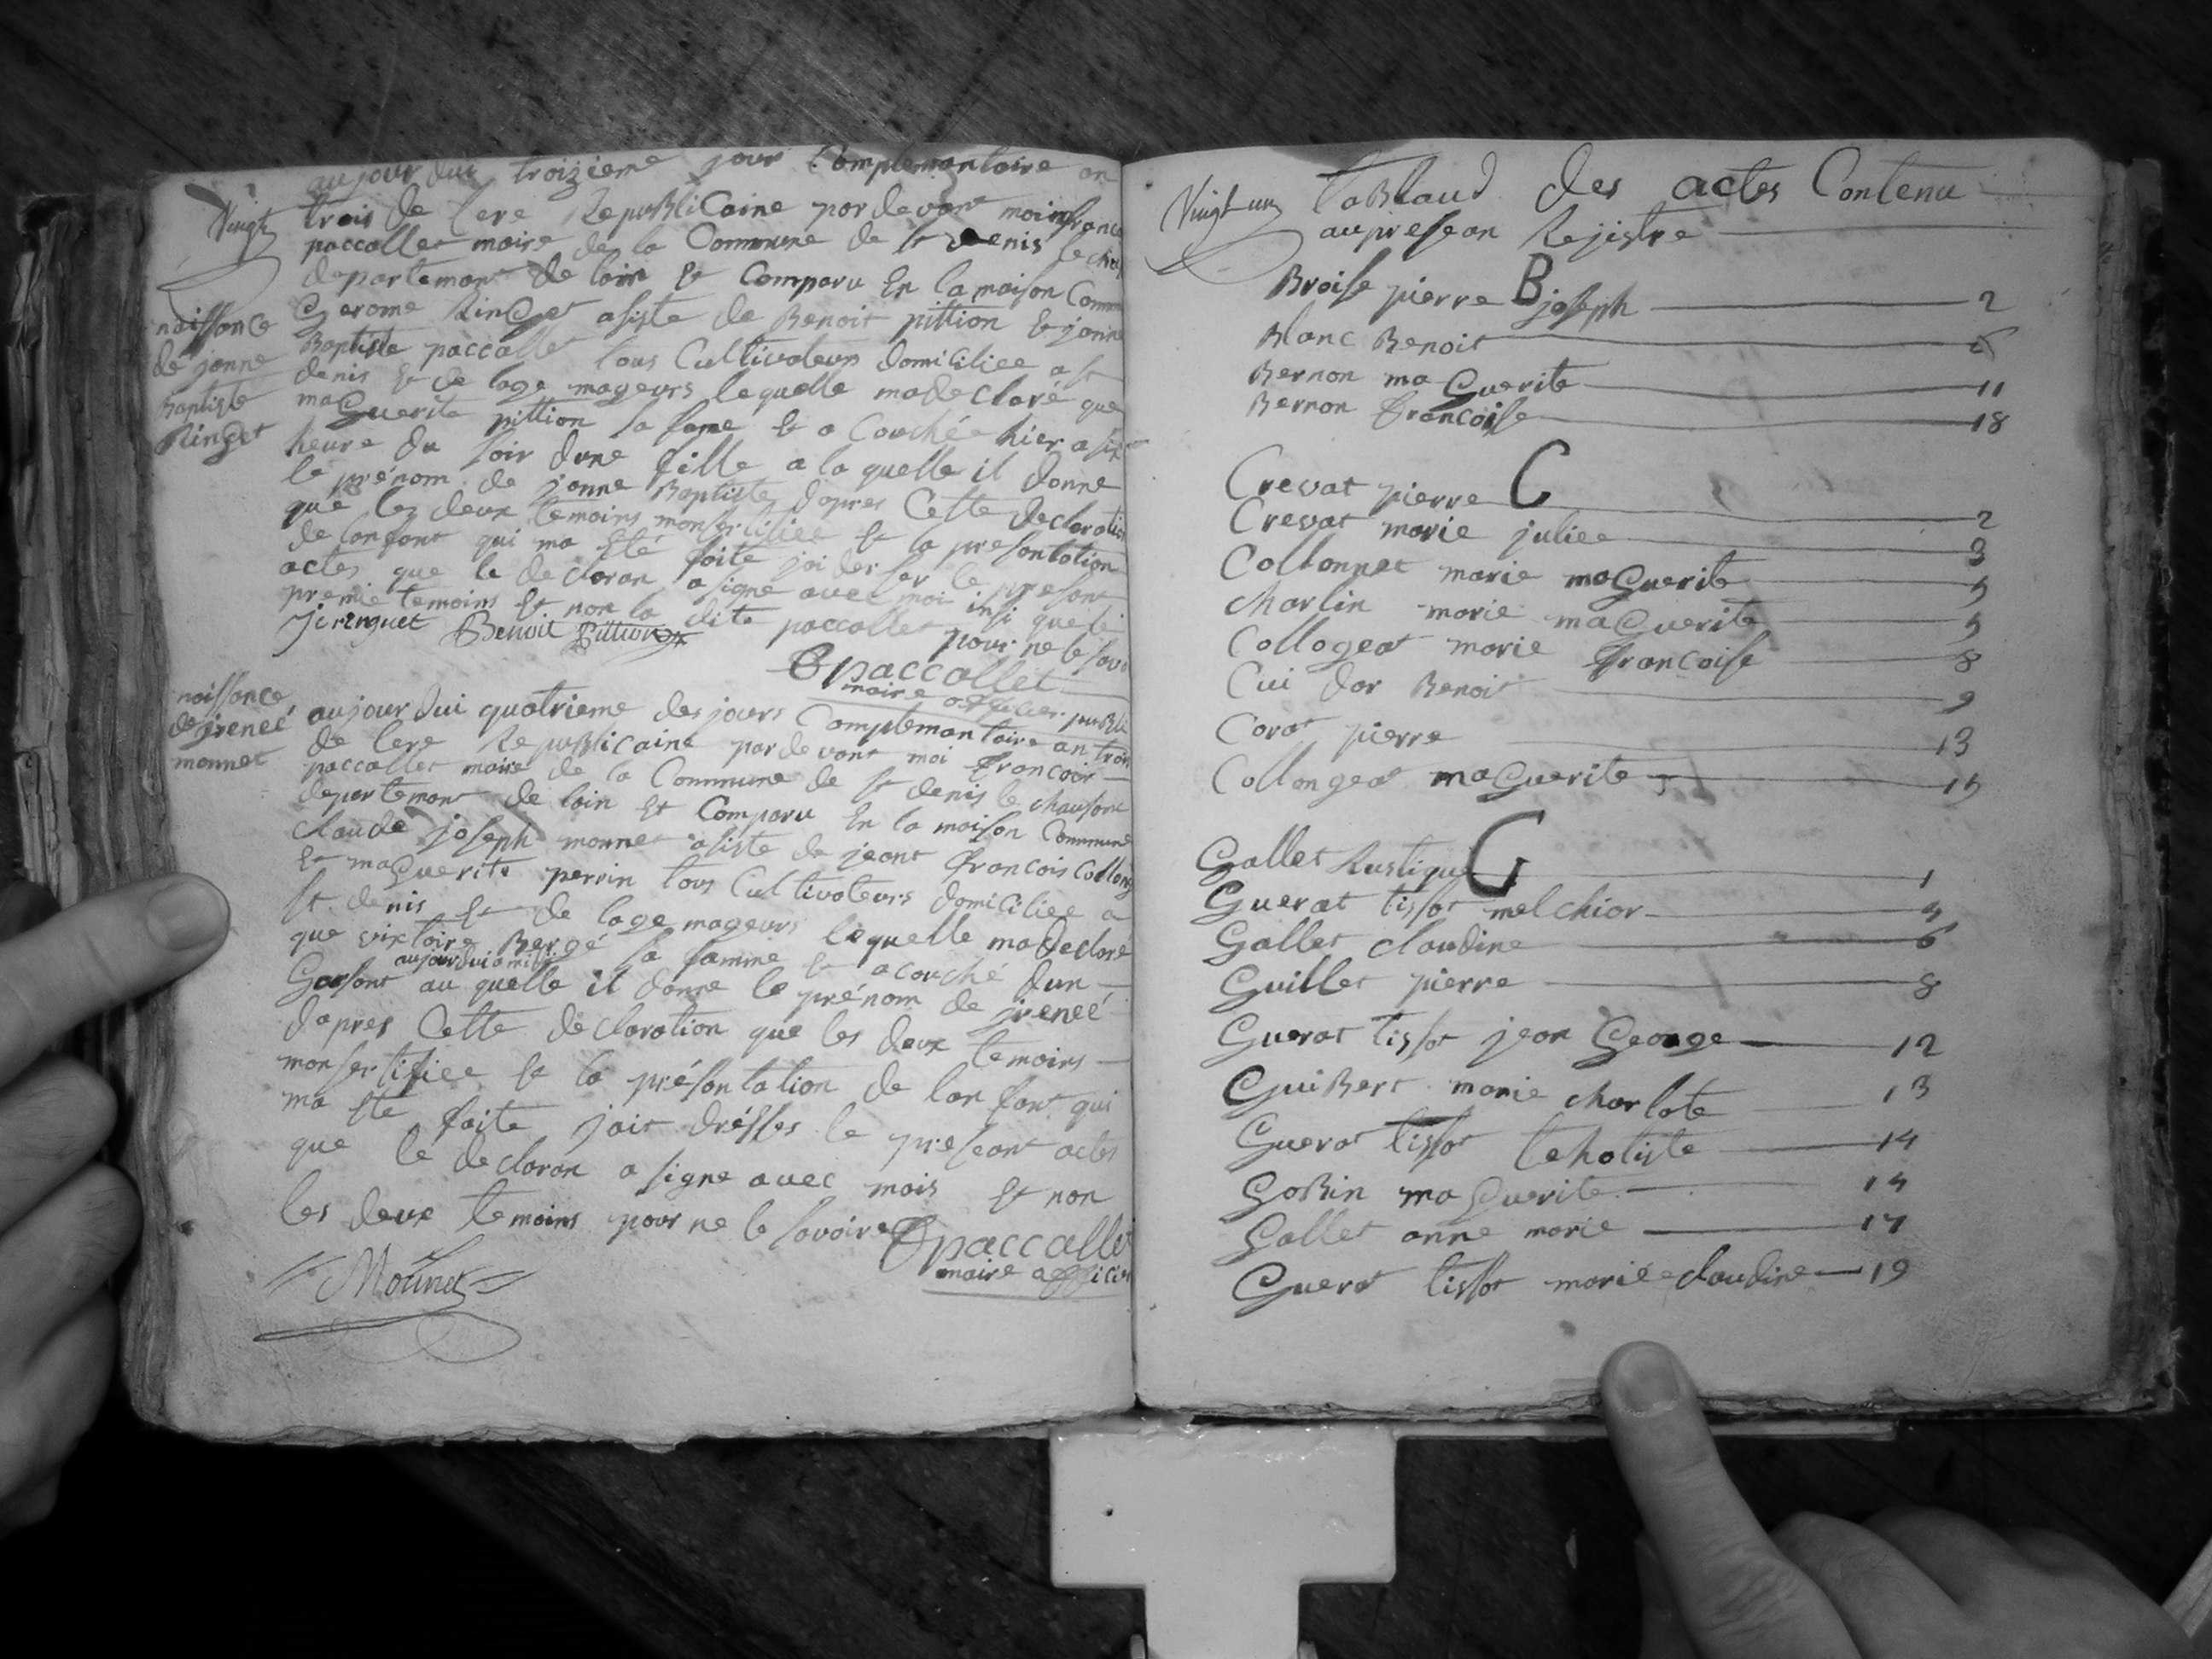 Vingt
aujourdui troizieme jour Complemantaire an
trois de lere RepuBliCaine pardevant moi
paccallet maire de la Commune de st Denis le
departemant de lain Et Comparu En la maison
Gerome Ringet asiste de Benoit pittion &
Baptiste paccallet tous Cultivateurs domiciliee a st
denis & de lage mageurs lequelle ma declaré que
maGuerite pittion sa fame & a Couchée hier a
heure du soir dune fille a la quelle il donne
le prénom de janne Baptiste dapres Cette declaration
que lez deux temoins mon sertifiee & la presantation
de lanfant qui ma Eté faite jai
actes que le declaran a signe avec moi insi que le
premie temoins Et non la dite paccallet pour ne le
naissance
de janne
Baptiste
Ringet
Jeringuet Benoit Pittion
paccallet
maire officier
naissance
de jreneé
monnet
aujourdui quatrieme des jours Complemantaire an trois
de lere RepuBlicaine pardevant moi francois
paccallet maire de la Commune de st denis le chausont
departemant de lain Et Comparu En la maison Commune
claude joseph monnet asiste de jeant francois
Et maGuerite perrin tous Cultivateurs domiciliee a
st denis Et de lage mageurs lequelle ma declaré
que victoire Bergé sa famme & acouché dun
aujourdui a midi
Garsont au quelle il donne le prénom de jreneé
dapres Cette declaration que les deux temoins
mon sertifiee & la présantation de lanfant qui
ma Eté faite jait drésses le preseant actes
que le declaran a signe avec mois Et non
les deux temoins pour ne le savoire
Mounet
paccallet
maire
Vingt un
taBlaud des actes Contenu
au presean Rejistre
B
Broise pierre joseph 2
Blanc Benoit
Bernon maGuerite 11
Bernon francoise 18
C
Crevat pierre 2
Crevat marie juliee 3
Collonnet marie maGuerite 5
Charlin marie maGuerite 5
Collogeat marie francoise 8
Cui dor Benoit 9
Corat pierre 13
Collongeat maGuerite 15
G
Gallet Rustique 1
Guerat tissot melchior 4
Gallet claudine 6
Guillet pierre 8
Guerat tissot jean George 12
GuiBert marie charlote 13
Guerat tissot 14
GoBin maGuerite 14
Gallet anne marie 17
Guerat tissot marie claudine 19